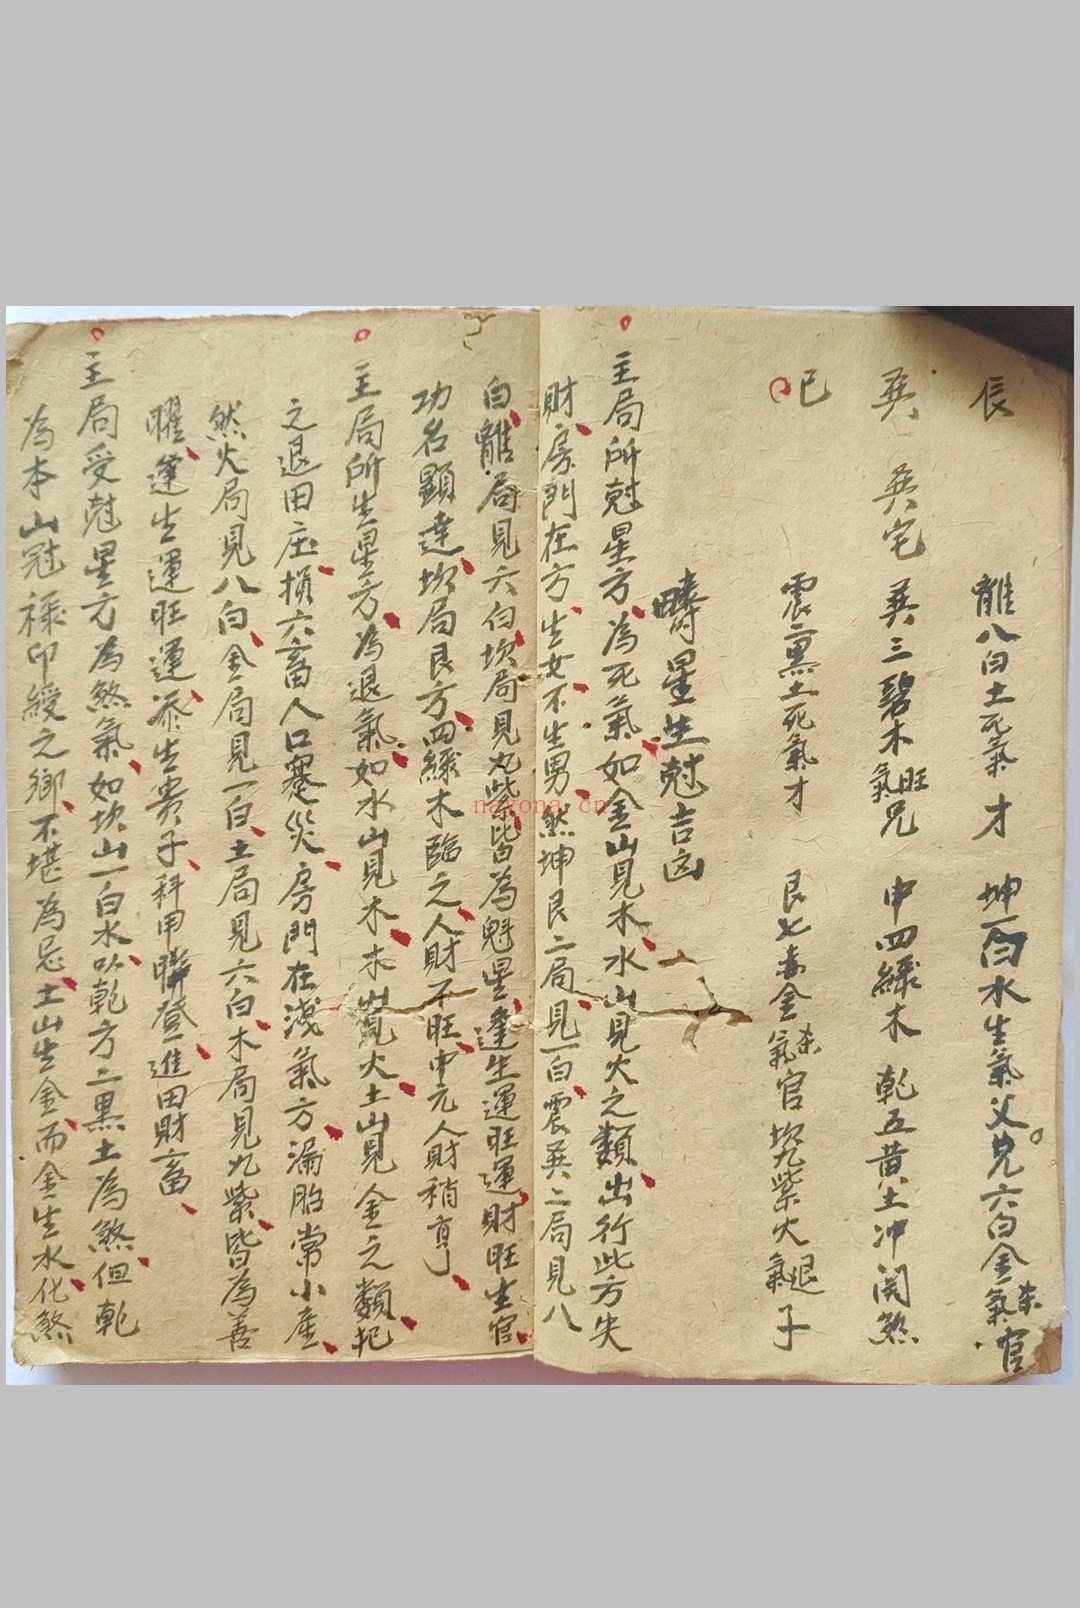 辰　離八白土死氣才　坤一白水生氣父兌六白金氣杀官
巽　巽宅　巽三碧木氣旺兄　中四緑木　乾五黄土冲関煞
巳　震二黒土死氣才　艮七赤金氣杀官　坎九紫火氣退子
疇星生尅吉凶
主局所尅星方為死氣如金山見木水山見火之類出行此方失
財房門在方生女不生男然坤艮二局見一白震巽二局見八
白離局見六白坎局見九紫皆為魁星逢生運旺運財旺生官
功名顯達坎局艮方四緑木臨之人財不旺中元人財稍亨
主局所生星方為退氣如水山見木木山見火土山見金之類犯
之退田庄損六畜人口蹇災房門在洩氣方漏胎常小産
然火局見八白金局見一白土局見六白木局見九紫皆為善
曜逢生運旺運添生貴子科甲聯登進田財畜
主局受尅星方為煞氣如坎山一白水以乾方二黒土為煞但乾
為本山冠祿印綬之鄉不堪為忌土山生金而金生水化煞
nayona.cn